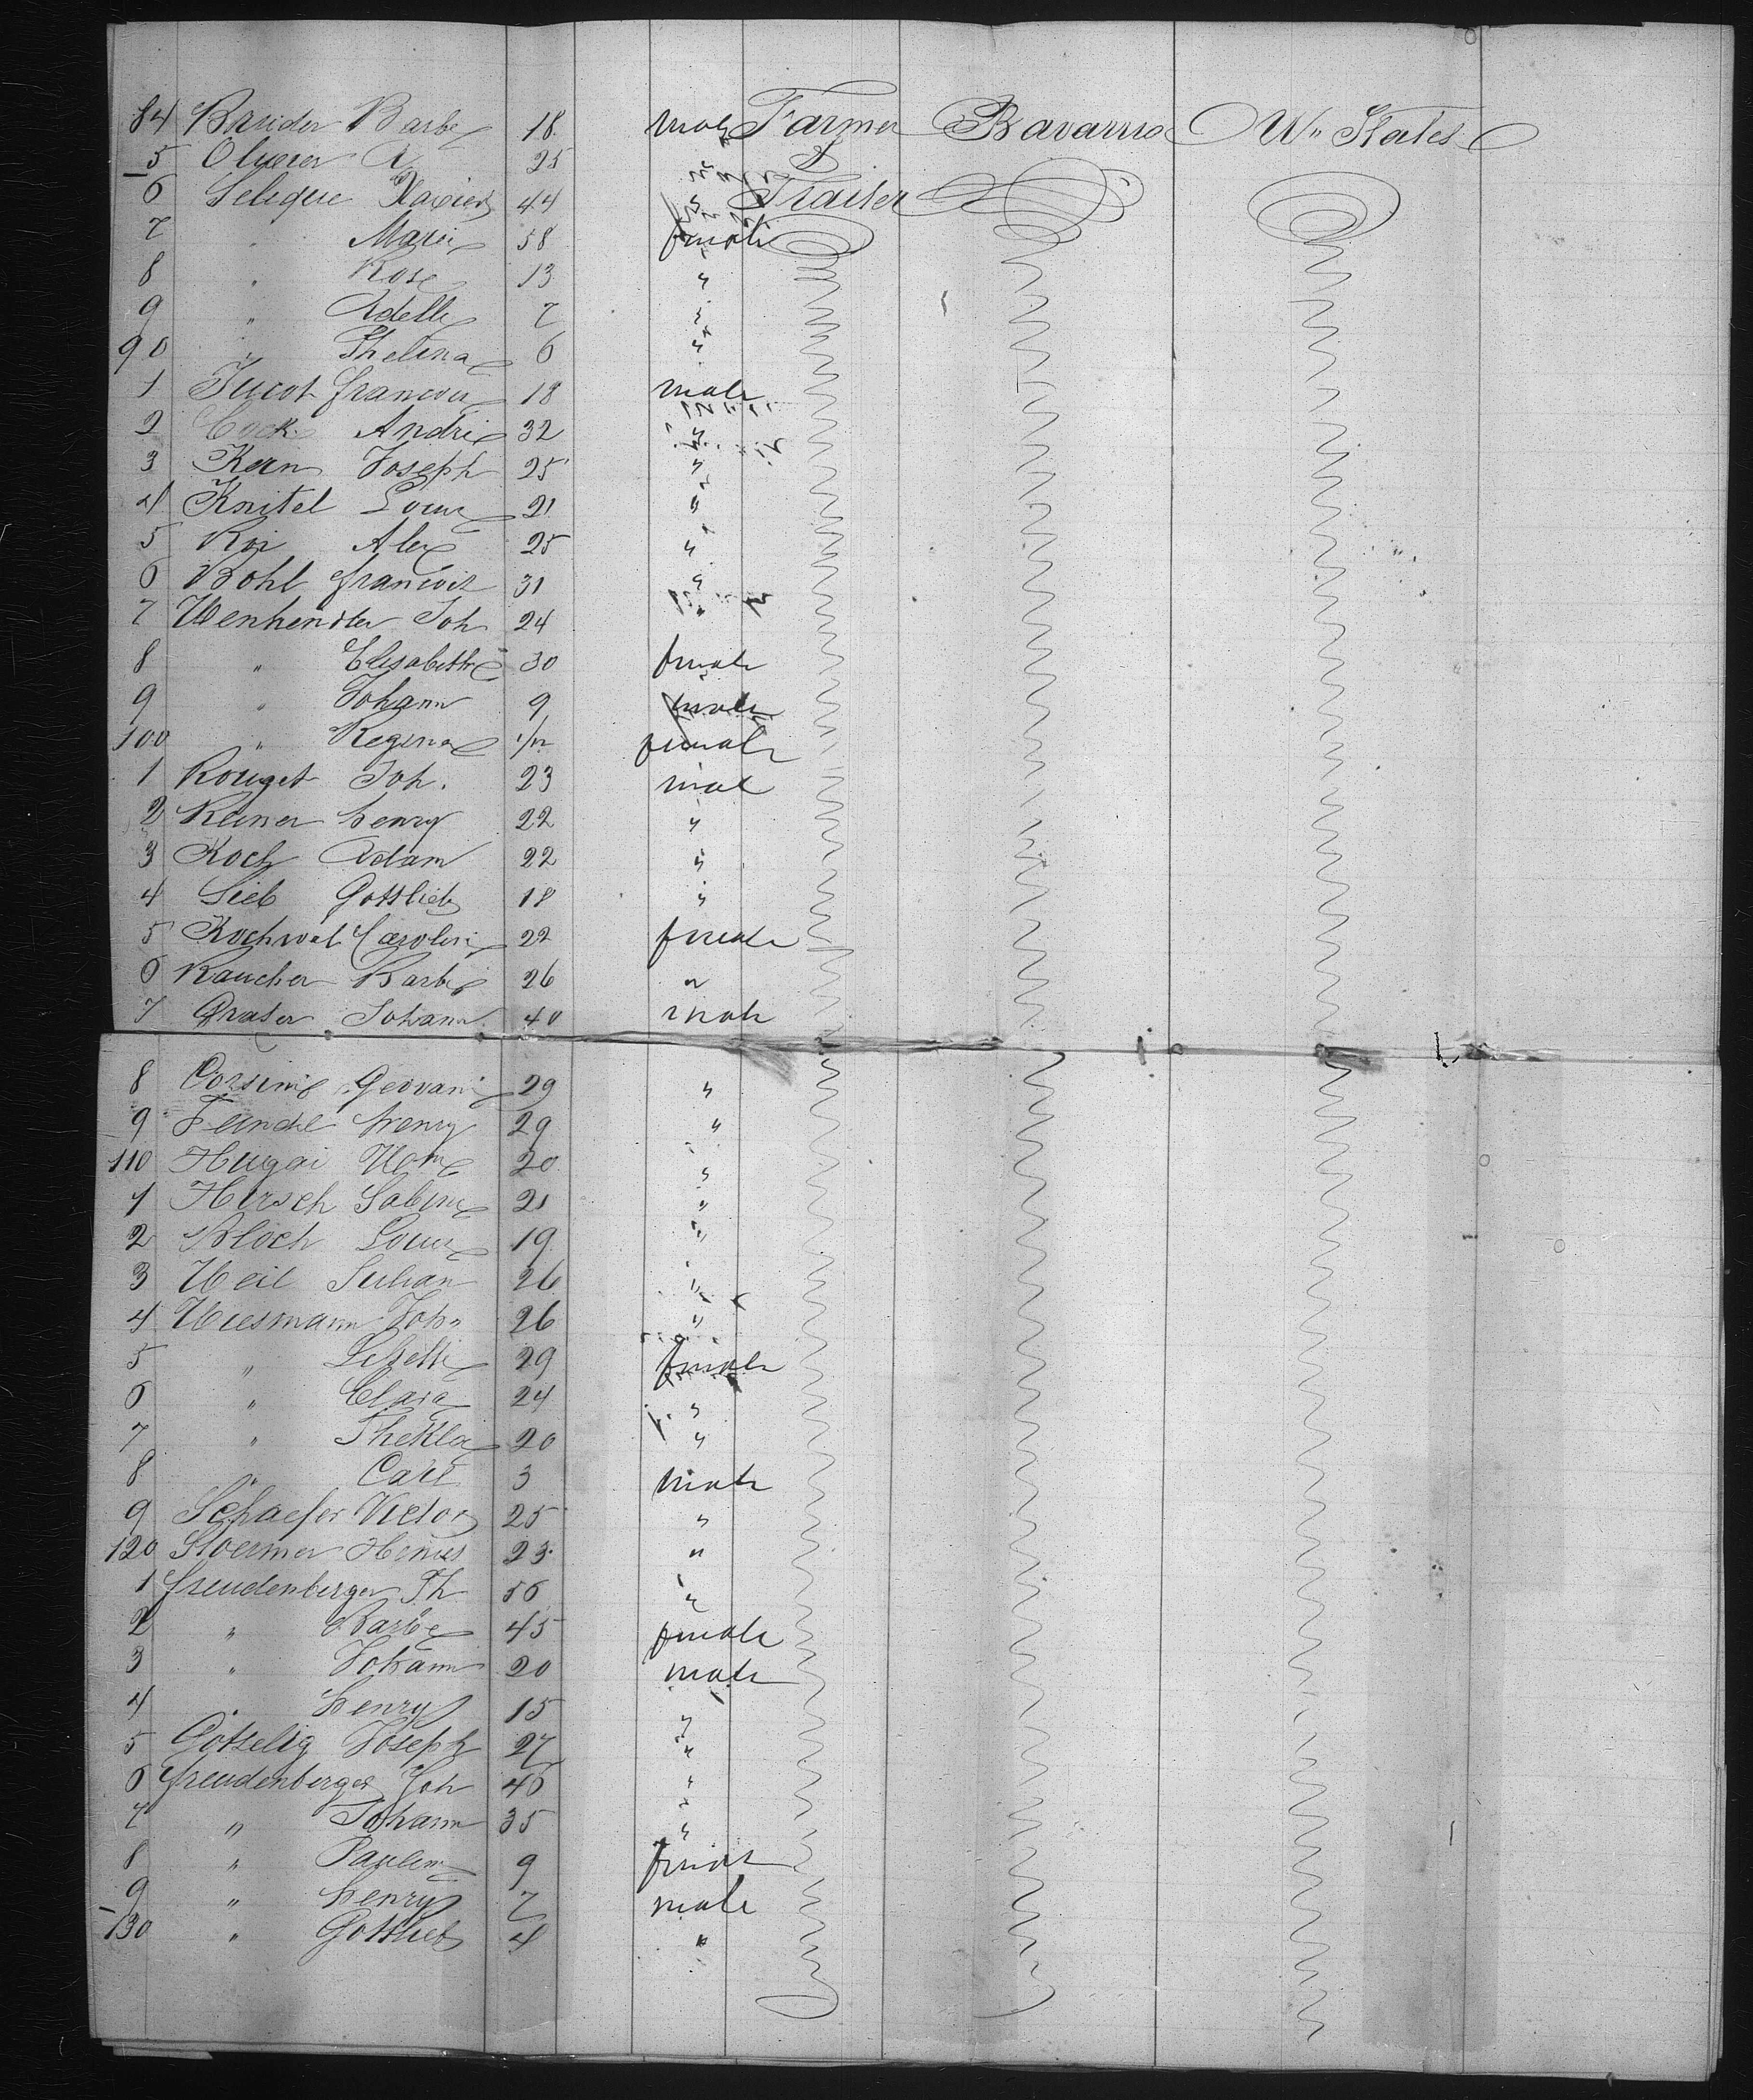 84 Bruider Barbe 18 male Farmer Bavaria Un States
5 Oliver A 25
6 Seleque Xavier 44 " Traiter
7 " Marie 58 female
8 " Rose 13 "
9 " Adelle 7 "
90 " Thelina 6 "
1 Jucot francois 18 male
2 Cock Andrie 32 "
3 Kern Joseph 25 "
4 Knitel Louis 21 "
5 Roi Alex 25 "
6 Bohl francois 31 "
7 Joh 24 "
8 " Elisabeth 30 female
9 " Johann 9 male
100 " Regina 1/12 female
1 Rouget Joh. 23 male
2 Reiner henry 22 "
3 Koch Adam 22 "
4 Sieb Gottlieb 18 "
5 Carolin 22 female
6 Raucher Barbe 26 "
7 Graser Johann 40 male
8 Corsini Geovani 29 "
9 henry 29 "
110 Hugai 20 "
1 Hirsch Sabine 21 "
2 Bloch Louis 19 "
3 Weil Julian 26 "
4 Wiesmann John 26 "
5 " Lisette 29 female
6 " Clara 24 "
7 " Thekla 20 "
8 " Carl 3 male
9 Schaefer Victor 25 "
120 Stoermer 23 "
1 freudenberger Th 56 "
2 " Barbe 45 female
3 " Johann 20 male
4 " henry 15 "
5 Gottselig Joseph 27 "
6 freudenberger Joh 40 "
7 " Johann 35 "
8 " Paulin 9 female
9 " henry 7 male
130 " Gottlieb 4 "